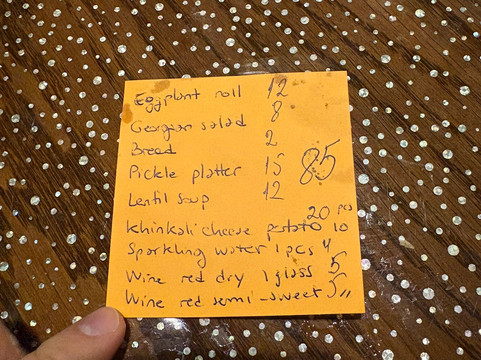 Eggplant roll 12
Georgian salad 8
Bread 2
Pickle platter 15
85
Lentil soup 12
20 pcs
khinkali cheese potato 10
Sparkling water 1 pcs 4
Wine red dry 1 glass 5
Wine red semi-sweet 5 "